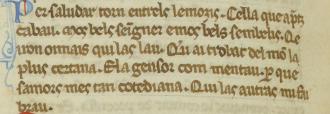 Per saludar torn entrels lemoris. Cella que a pretz
cabau. Mos bels seigner e mos bels sembelis. Qe
ren on mais qui las lau. Qui a trobat del mon la
plus certana. E la gensor com mentau. per que
samors mes tan cotediana. Qui las autras mi fai
brau.